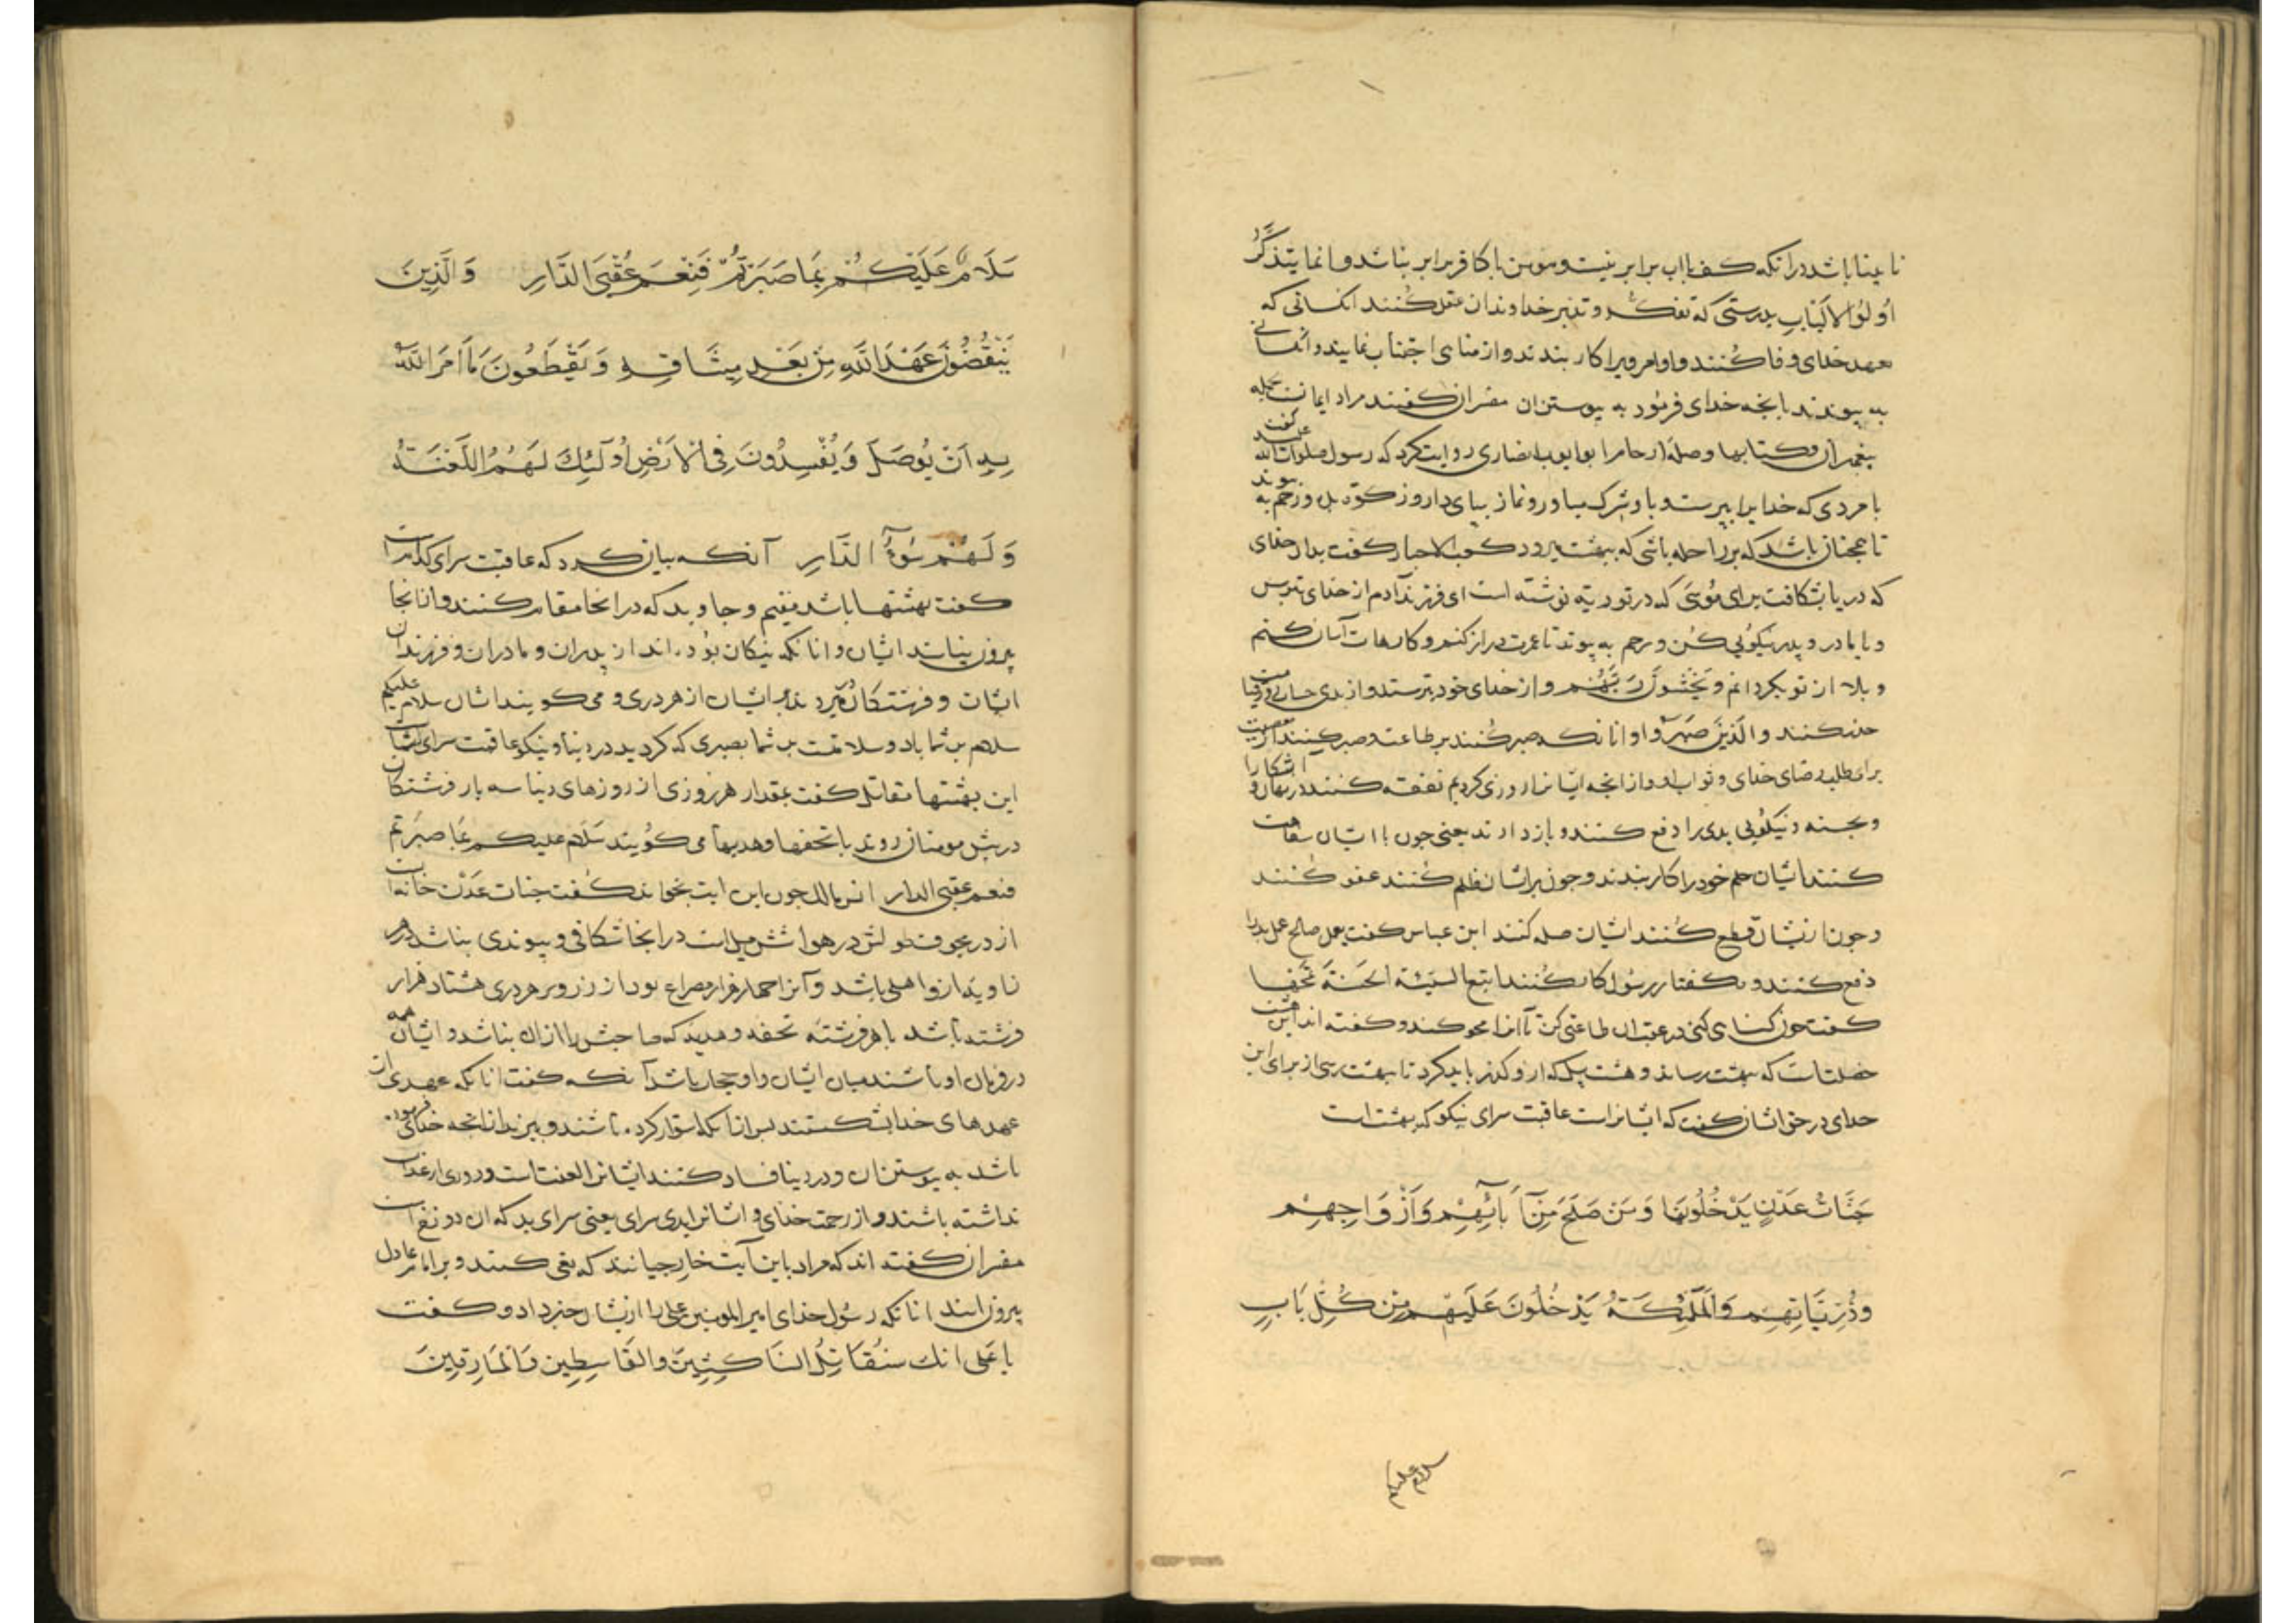 نابینا باشد درانکه کف باب برابر نیست و مومن با کافر برابر نباشد و انما یتذکر
اولوا الالباب بدرستی که تفکر و تدبر خداوندان عقل کنند انکسانی که
بعهد خدای وفا کنند و اوامر ویرا کار بندند و از مناهی اجتناب نمایند و انکسانی
به پیوندند بانجه خدای فرمود به پیوستن ان مفسران کفتند مراد ایمانست بجمله
بیغمبران و کتابها وصلة ارحام ابو ایوب انصاری روایت کرد که رسول صلوات الله علیه کفت
با مردی که خدایرا ببرست و باو شرک میاور و نماز ببای دار و زکوة بده و رحم به پیوند
تا همجنان باشد که بر راحله باشی که ببهشت برود کعب الاحبار کفت بدان خدای
که دریا بشکافت برای موسی که در توریة نوشته است ای فرزند آدم از خدای بترس
و با مادر و پدر نیکویی کن و رحم به پیوند تا عمرت دراز کنم و کارهات آسان کنم
و بلا از تو بکردانم و یخشون ربهم و از خدای خود بترسند و از بدی حساب روز قیامت
حذر کنند و الذین صبروا و انانکه صبر کنند بر طاعت و صبر کنند از معصیت
برای طلب رضای خدای و ثواب او و از انجه ایشانرا روزی کردیم نفقه کنند در نهان و آشکارا
و بحسنه و نیکویی بدی را دفع کنند و بازدارند یعنی جون با ایشان سفاهت
کنند ایشان حلم خود را کار بندند و جون برایشان ظلم کنند عفو کنند
و جون از یشان قطع کنند ایشان صله کنند ابن عباس کفت بعمل صالح عمل بد را
دفع کنند و بکفتار رسول کار کنند اتبع السیئة الحسنة تمحها
کفت جون کناهی کنی در عقب ان طاعتی کن تا انرا محو کند و کفته اند این هشت
خصلتست که ببهشت رساند و هشت پلکه از و کذر باید کرد تا ببهشت رسی از برای این
خدای در حق ایشان کفت که ایشانراست عاقبت سرای نیکو که بهشت است
جَنَّاتُ عَدْنٍ یَدْخُلُونَهَا وَمَنْ صَلَحَ مِنْ آبَائِهِمْ وَأَزْوَاجِهِمْ
وَذُرِّیَّاتِهِمْ وَالْمَلٰئِکَةُ یَدْخُلُونَ عَلَیْهِمْ مِنْ کُلِّ بَابٍ
سلام علیکم
سَلَامٌ عَلَیْکُمْ بِمَا صَبَرْتُمْ فَنِعْمَ عُقْبَی الدَّارِ وَالَّذِینَ
یَنْقُضُونَ عَهْدَ اللَّهِ مِنْ بَعْدِ مِیثَاقِهِ وَیَقْطَعُونَ مَا أَمَرَ اللَّهُ
بِهِ أَنْ یُوصَلَ وَیُفْسِدُونَ فِی الْأَرْضِ أُولَٰئِکَ لَهُمُ اللَّعْنَةُ
وَلَهُمْ سُوءُ الدَّارِ آنکه بیان کرد که عاقبت سرای کدامست
کفت بهشتها باشد مقیم و جاوید که در انجا مقام کنند و از انجا
بیرون نیایند ایشان و انانکه نیکان بوده اند از پدران و مادران و فرزندان
ایشان و فرشتکان درروند بر ایشان از هر دری و می کویند ایشان سلام علیکم
سلام بر شما باد و سلامت بر شما بصبری که کردید در دنیا و نیکو عاقبت سرای است شما
این بهشتها مقاتل کفت بمقدار هر روزی از روزهای دنیا سه بار فرشتکان
در پیش مومنان روند با تحفها و هدیها می کویند سلام علیکم بما صبرتم
فنعم عقبی الدار انس مالک جون این ایت بخواند کفت جنات عدن خانه است
از در مجوف طولش در هوا شش میل است درانجا شکافی و پیوندی نباشد در هر
زاویه ازو اهلی باشد و آنرا جهار هزار مصراع بود از زر و بر هر دری هشتاد هزار
فرشته باشد با هر فرشته تحفه و هدیه که صاحبش را ازان نباشد و ایشان همه
در فرمان او باشند میان ایشان و او حجاب باشد آنکه کفت انانکه عهدی از
عهدهای خدا بشکستند بس ازانکه استوار کرده باشند و ببرند ازانجه خدای فرموده
باشد به پیوستن ان و در دنیا فساد کنند ایشانرا لعنت است و دوری از عذاب
نداشته باشند و از رحمت خدای و ایشانرا بدی سرای یعنی سرای بد که ان دوزخ است
مفسران کفته اند که مراد باین آیت خارجیانند که بغی کنند و بر امام عادل
بیرون ایند انانکه رسول خدای امیر المومنین علی را ازیشان خبر داد و کفت
یا علی انک ستقاتل الناکثین والقاسطین والمارقین